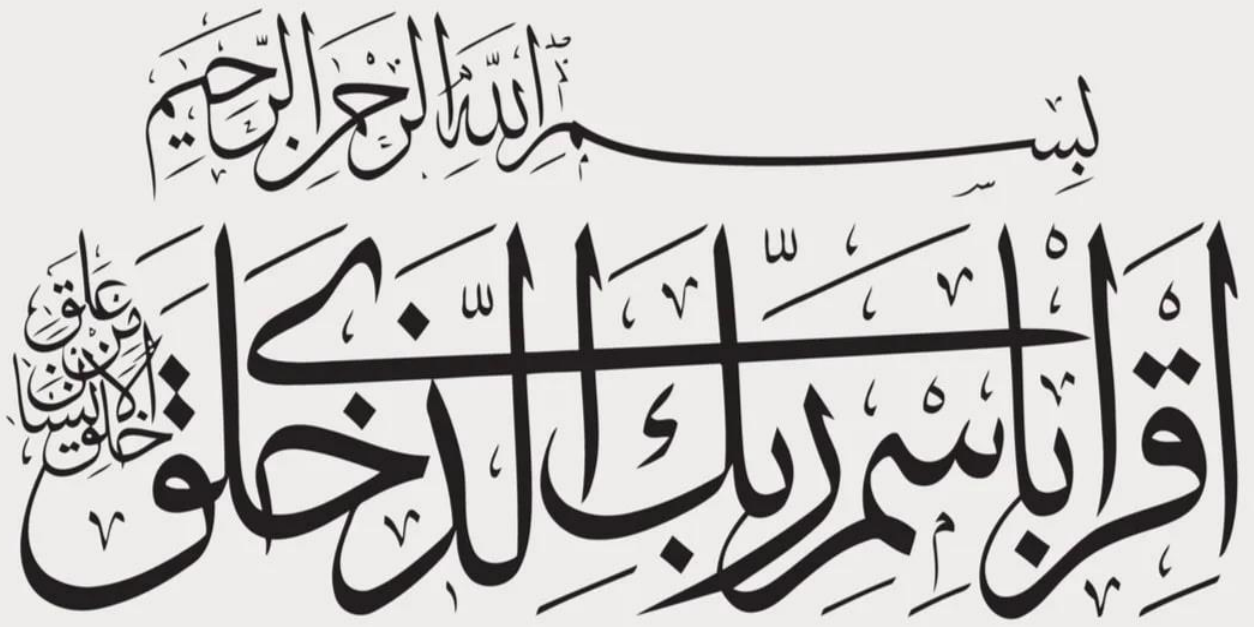 بسم الله الرحمن الرحيم
اقرا باسم ربك الذي خلق
خلق الانسان من علق